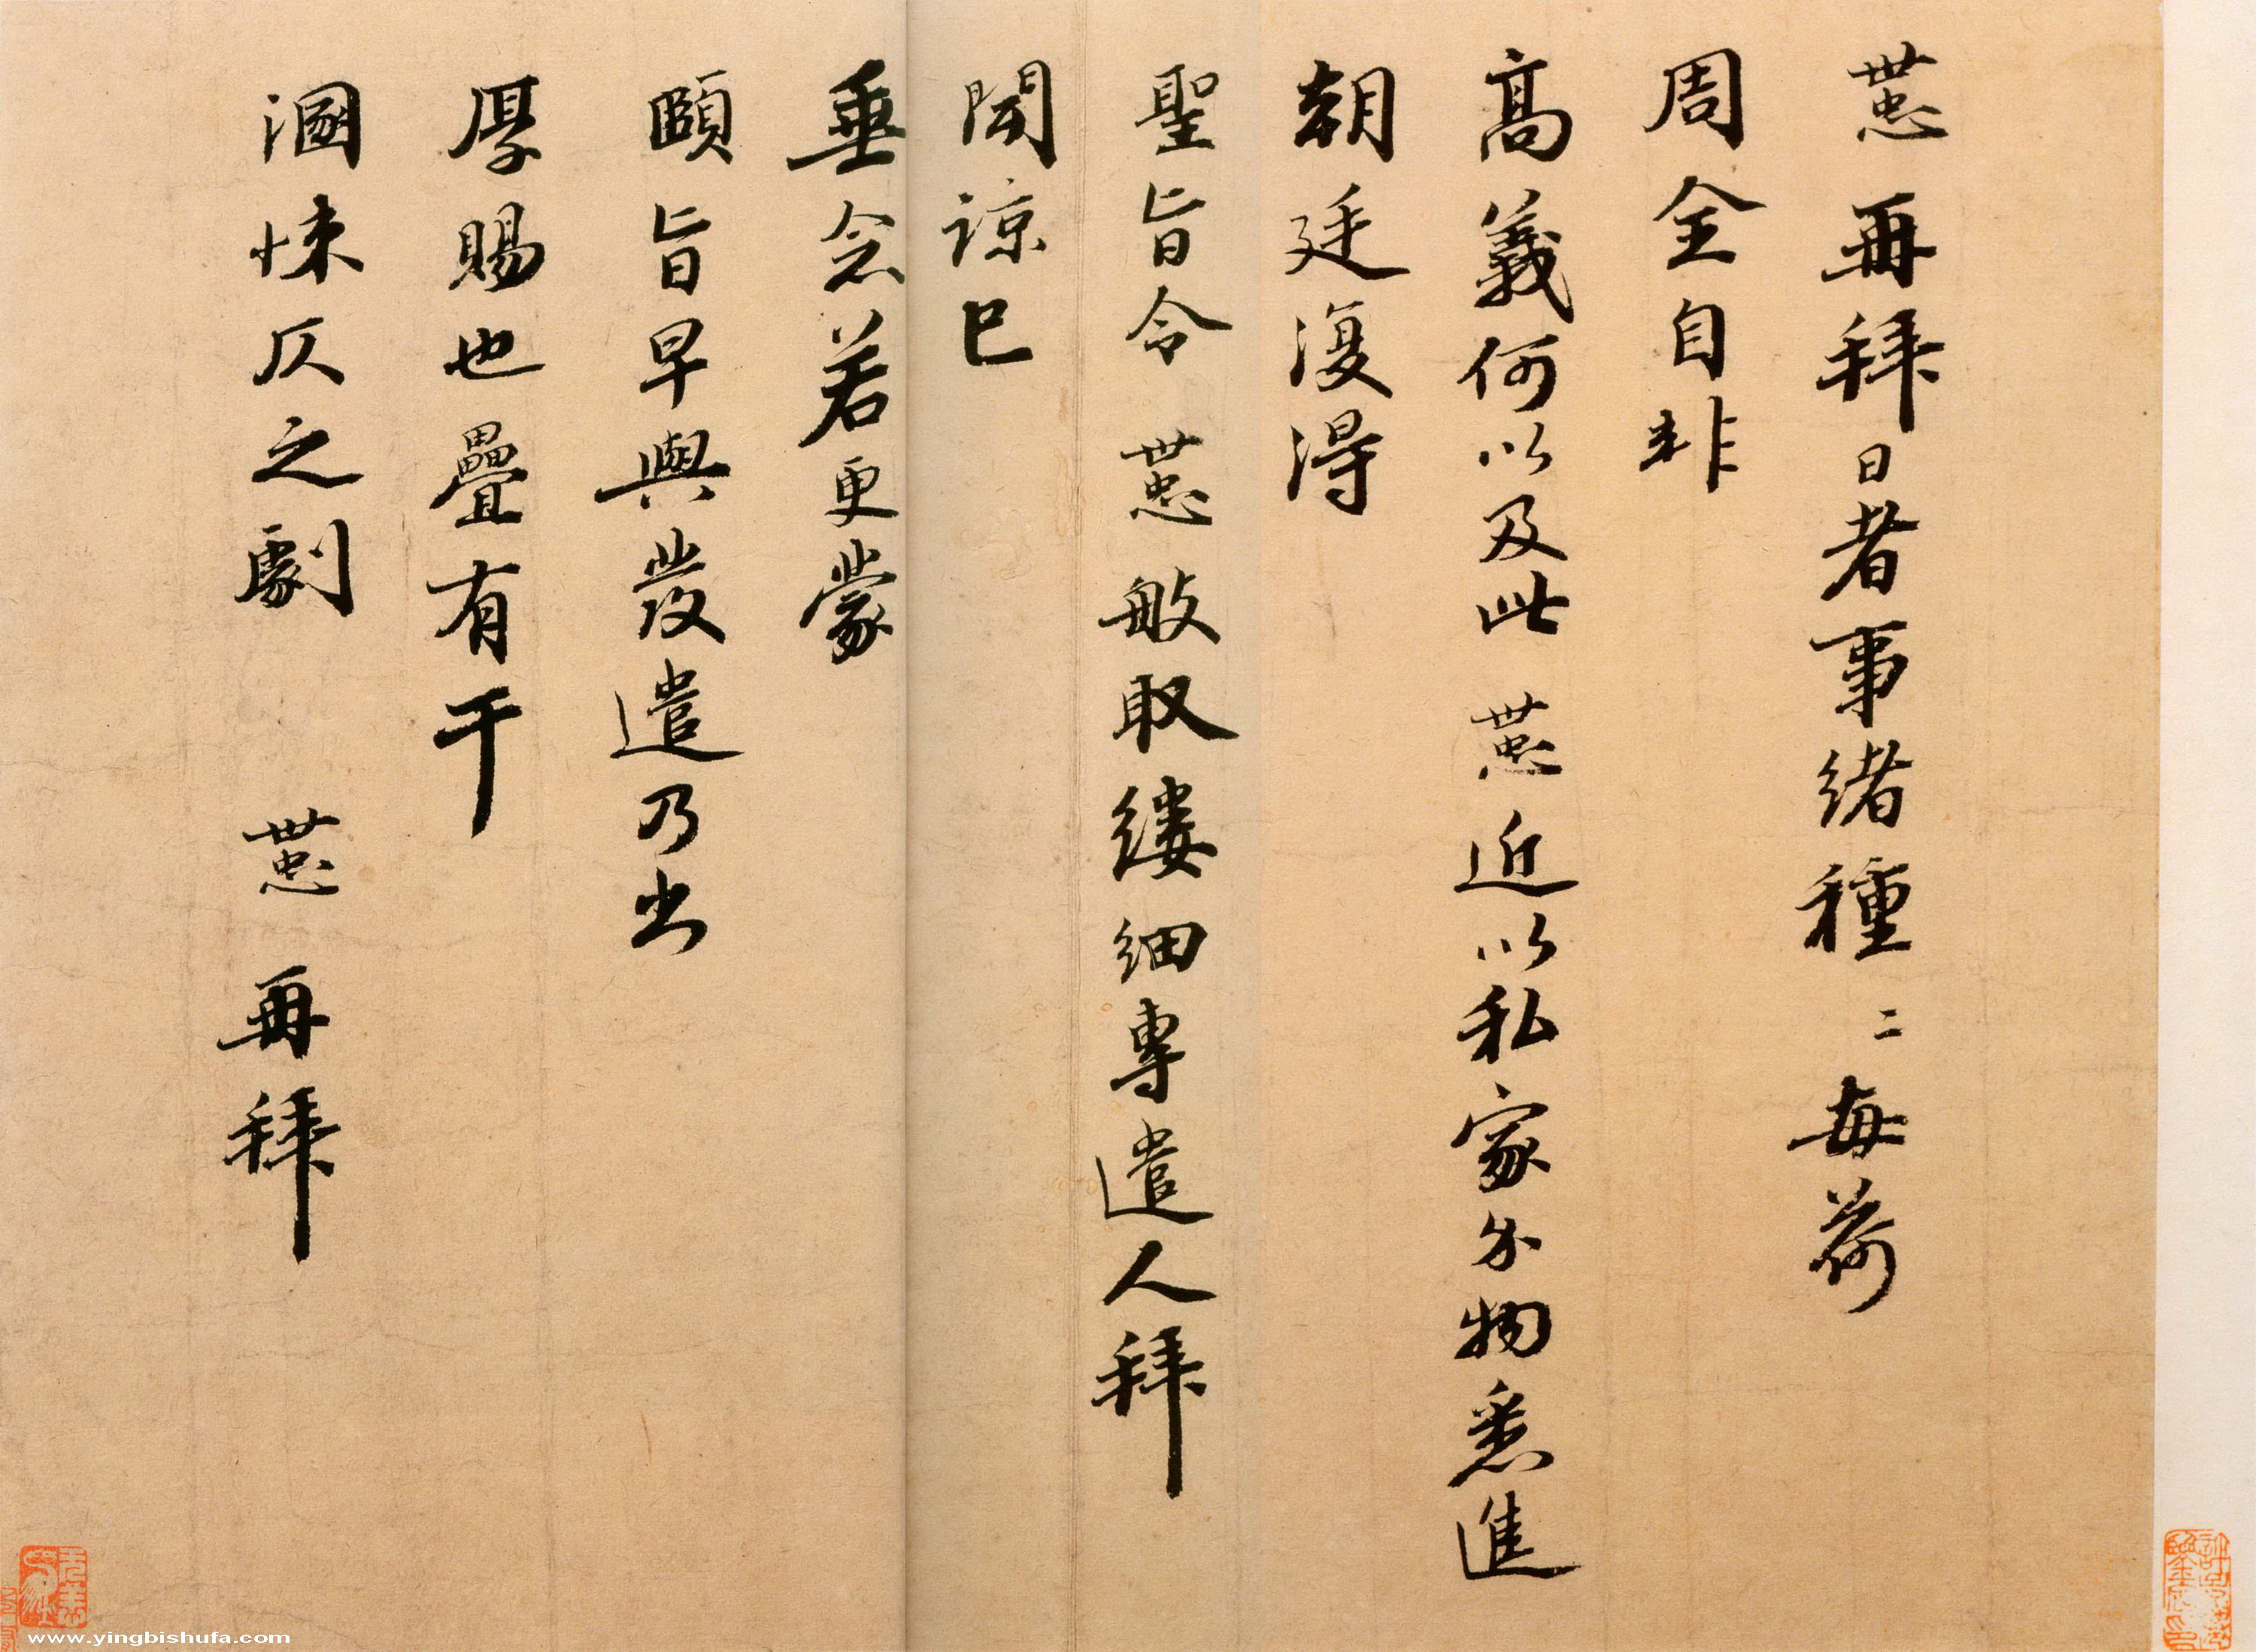 世忠再拜日者事緒種〻每荷
周全自非
高義何以及此世忠近以私家分物悉進
朝廷復得
聖旨令世忠般取縷細專遣人拜
聞諒已
垂念若更蒙
頤旨早與發遣乃出
厚賜也疊有干
溷悚仄之劇 世忠再拜
www.yingbishufa.com